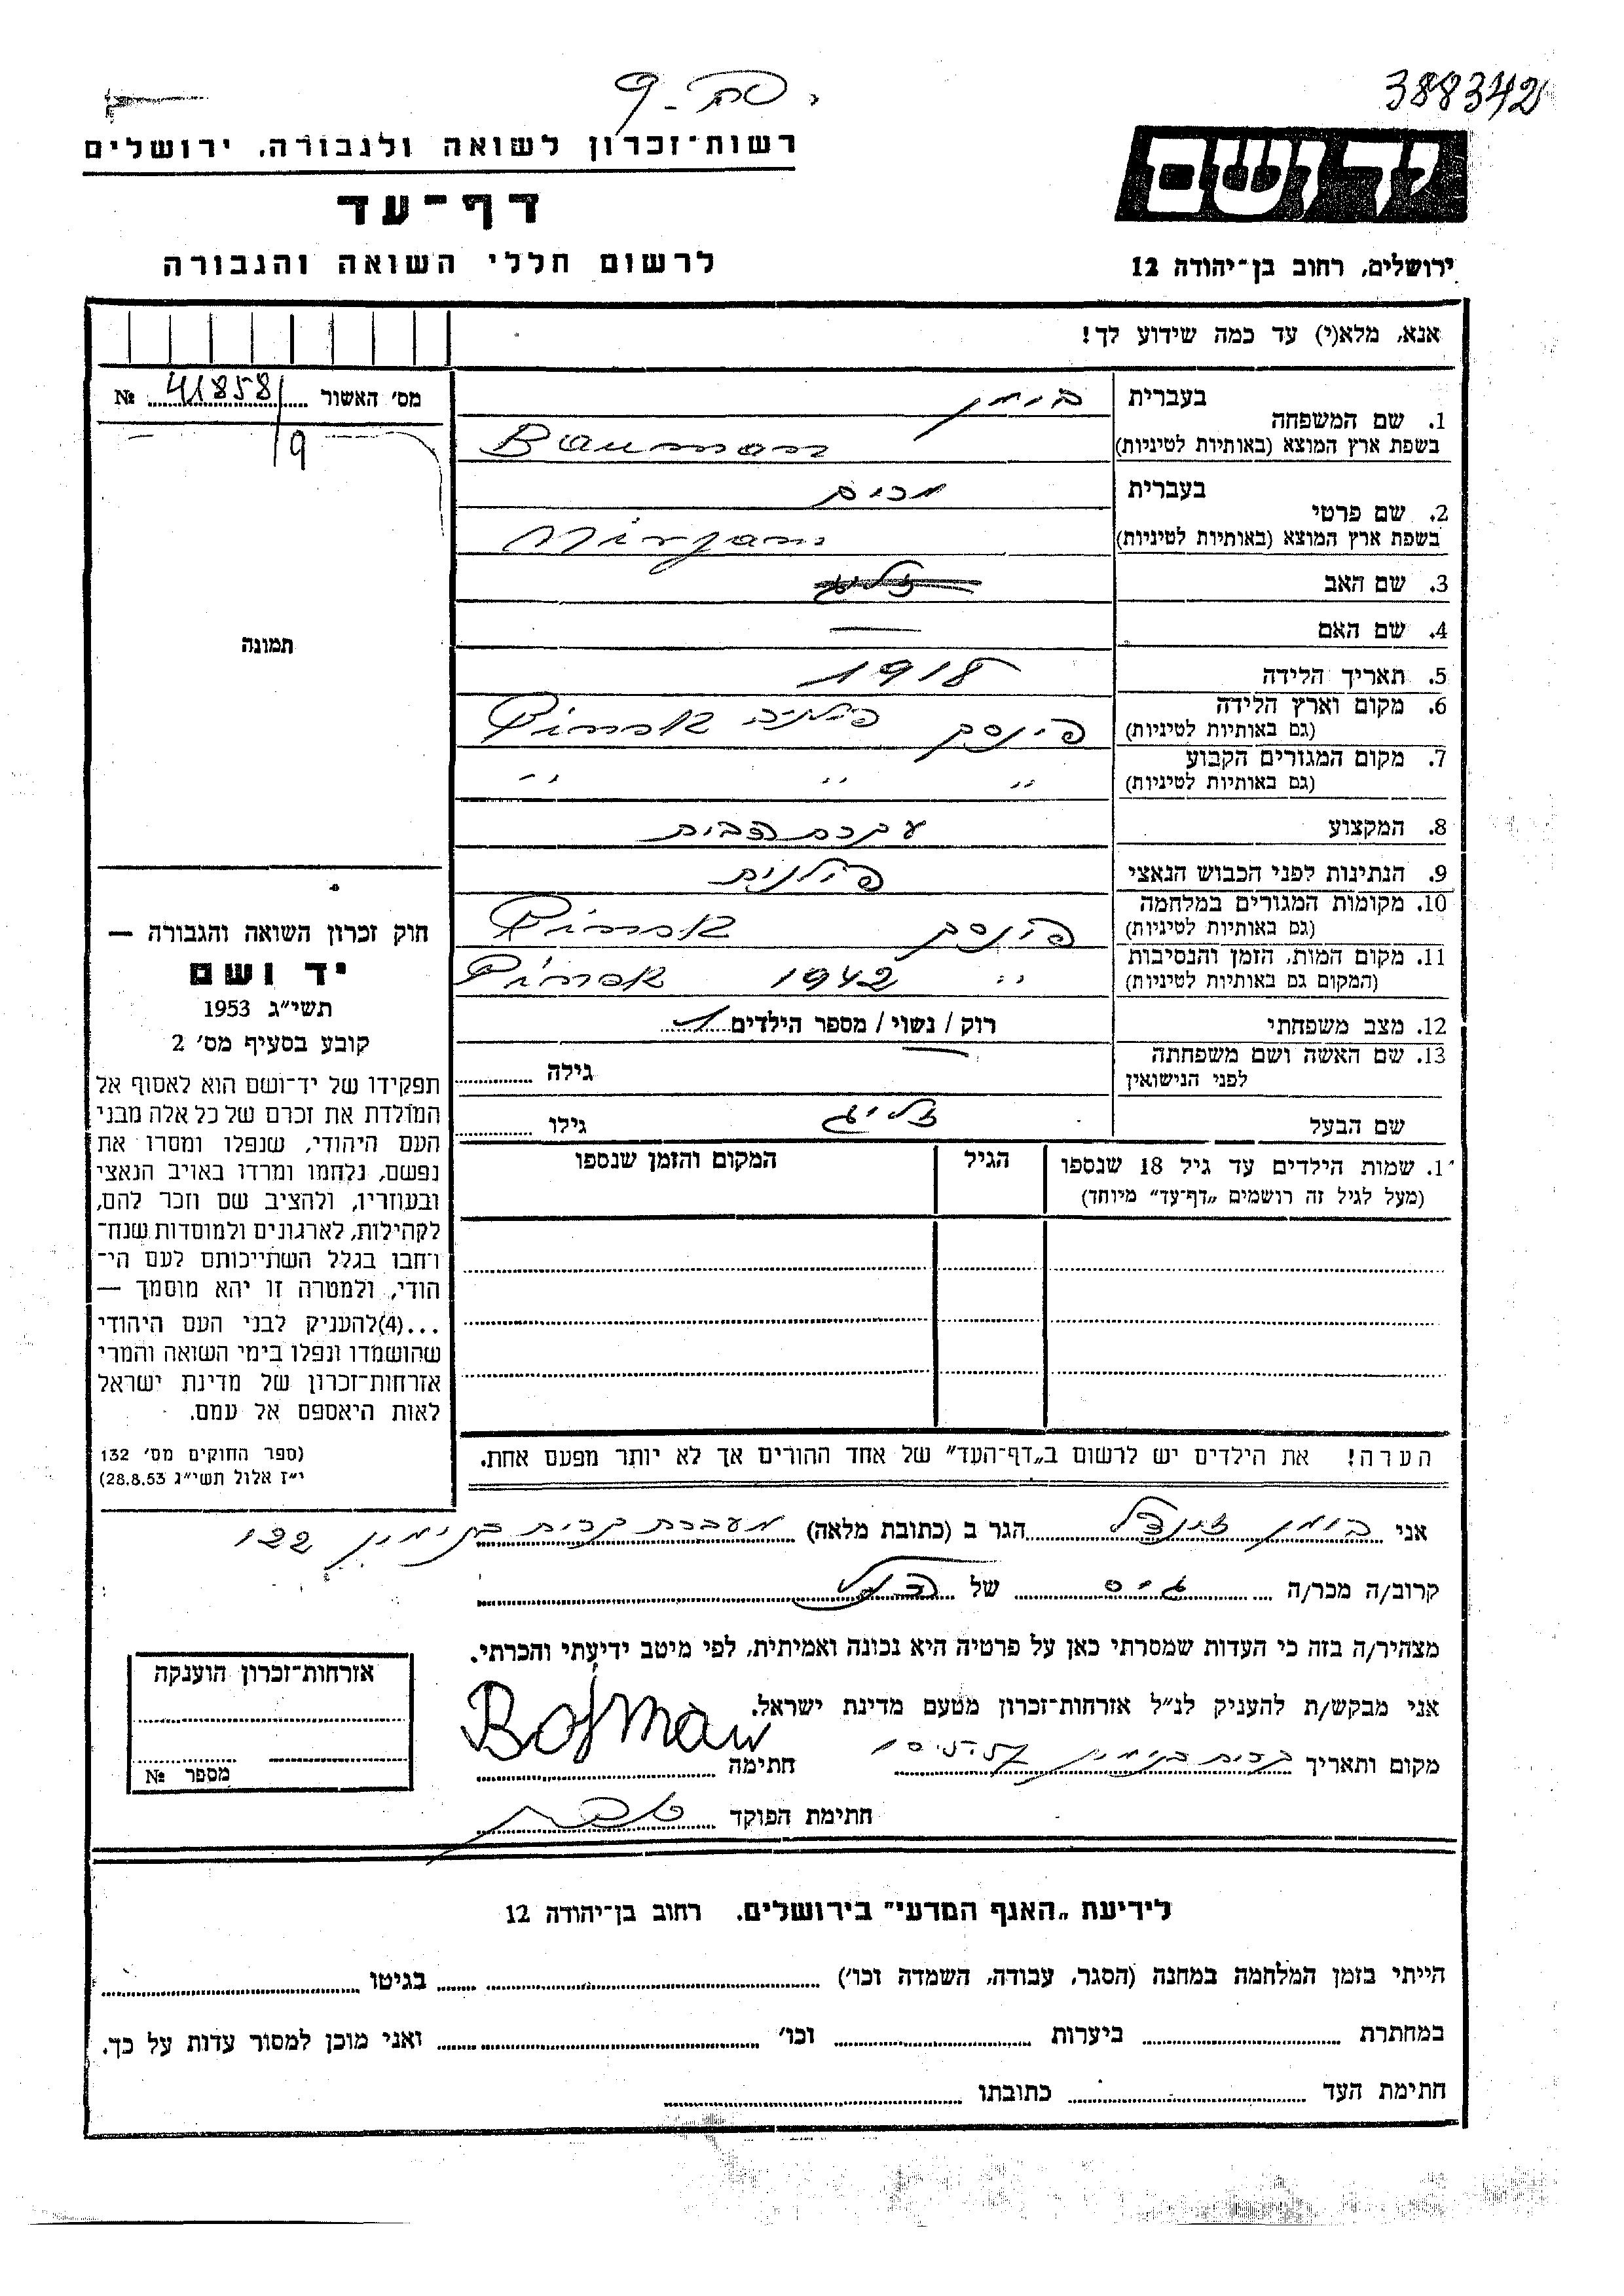 388342
יד ושם
ירושלים, רחוב בן־יהודה 12
רשות־זכרון לשואה ולגבורה, ירושלים
דף־עד
לרשום חללי השואה והגבורה
אנא, מלא(י) עד כמה שידוע לך!
מס׳ האשור 418581 №
9
1. שם המשפחה
בעברית בומן
בשפת ארץ המוצא (באותיות לטיניות) Bauman
2. שם פרטי
בעברית מרים
בשפת ארץ המוצא (באותיות לטיניות) Mirjam
3. שם האב זליג
4. שם האם —
5. תאריך הלידה 1918
6. מקום וארץ הלידה פינסק פולניה Pinsk
(גם באותיות לטיניות)
7. מקום המגורים הקבוע ״ ״ ״
(גם באותיות לטיניות)
8. המקצוע עקרת הבית
9. הנתינות לפני הכבוש הנאצי פולנית
10. מקומות המגורים במלחמה פינסק Pinsk
(גם באותיות לטיניות)
11. מקום המות, הזמן והנסיבות ״ 1942 Pinsk
(המקום גם באותיות לטיניות)
12. מצב משפחתי רוק / נשוי / מספר הילדים 1
13. שם האשה ושם משפחתה
לפני הנישואין גילה
שם הבעל זליג גילו
1. שמות הילדים עד גיל 18 שנספו הגיל המקום והזמן שנספו
(מעל לגיל זה רושמים „דף־עד״ מיוחד)
הערה! את הילדים יש לרשום ב„דף־העד״ של אחד ההורים אך לא יותר מפעם אחת.
תמונה
חוק זכרון השואה והגבורה —
יד ושם
תשי״ג 1953
קובע בסעיף מס׳ 2
תפקידו של יד־ושם הוא לאסוף אל
המולדת את זכרם של כל אלה מבני
העם היהודי, שנפלו ומסרו את
נפשם, נלחמו ומרדו באויב הנאצי
ובעוזריו, ולהציב שם וזכר להם,
לקהילות, לארגונים ולמוסדות שנח־
רבו בגלל השתייכותם לעם הי־
הודי, ולמטרה זו יהא מוסמך —
...(4)להעניק לבני העם היהודי
שהושמדו ונפלו בימי השואה והמרי
אזרחות־זכרון של מדינת ישראל
לאות היאספם אל עמם.
(ספר החוקים מס׳ 132
י״ז אלול תשי״ג 28.8.53)
אני בומן זינדל הגר ב (כתובת מלאה) מעברת קרית בנימין 122
קרוב/ה מכר/ה גיס של הנ״ל
מצהיר/ה בזה כי העדות שמסרתי כאן על פרטיה היא נכונה ואמיתית, לפי מיטב ידיעתי והכרתי.
אני מבקש/ת להעניק לנ״ל אזרחות־זכרון מטעם מדינת ישראל.
מקום ותאריך קרית בנימין חתימה Bofman
חתימת הפוקד
אזרחות־זכרון הוענקה
מספר №
לידיעת „האגף המדעי״ בירושלים. רחוב בן־יהודה 12
הייתי בזמן המלחמה במחנה (הסגר, עבודה, השמדה וכו׳) בגיטו
במחתרת ביערות וכו׳ ואני מוכן למסור עדות על כך.
חתימת העד כתובתו